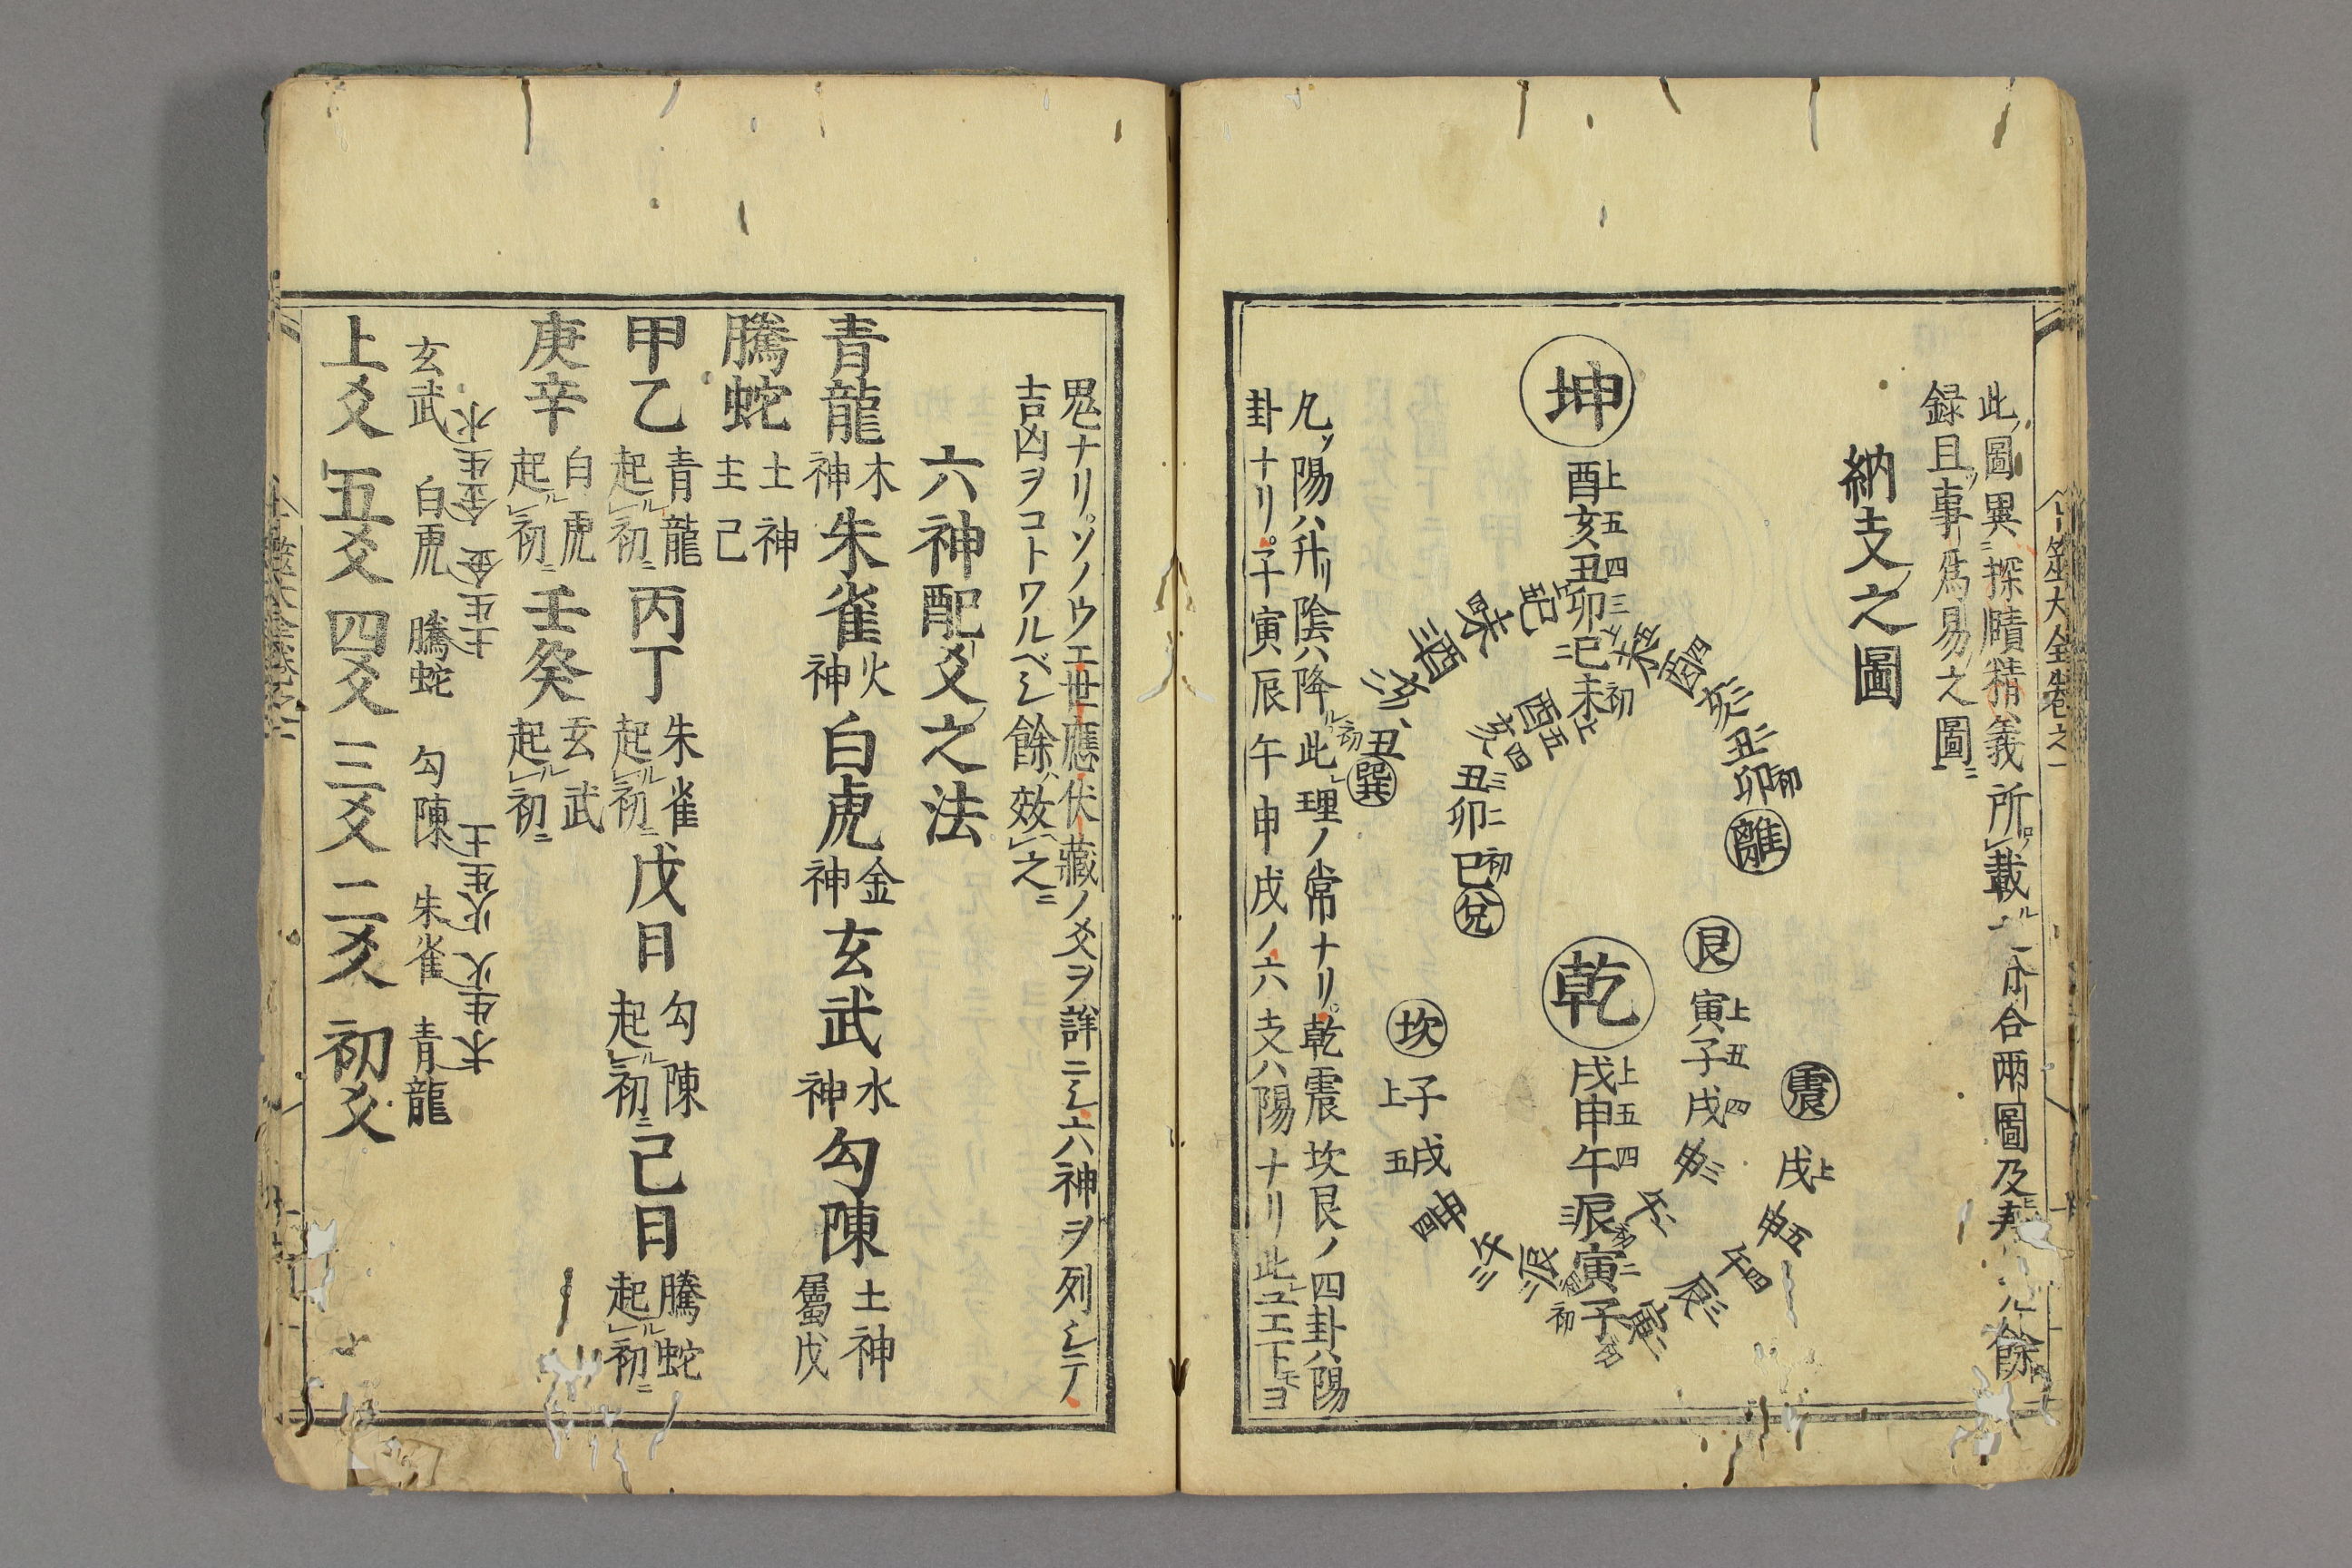 卜筮大全卷之一
此圖異探賾精義所載ル 合兩圖及 餘
録且事爲易之圖ニ
納支之圖
坤
上酉 五亥 四丑 三卯 二巳 初未
離
上巳 五未 四酉 三亥 二丑 初卯
兌
上未 五酉 四亥 三丑 二卯 初巳
巽
卯 巳 四未 三酉 二亥 初丑
乾
上戌 五申 四午 三辰 二寅 初子
艮
上寅 五子 四戌 三申 二午 初辰
震
上戌 五申 四午 三辰 二寅 初子
坎
上子 五戌 四申 三午 二辰 初寅
凡ソ陽ハ升リ陰ハ降ル此理ノ常ナリ。乾震坎艮ノ四卦ハ陽
卦ナリ。子寅辰午申戌ノ六支ハ陽ナリ此ユエ下ヨ
鬼ナリ。ソノウエ世應伏藏ノ爻ヲ詳ニシ六神ヲ列シテノ
吉凶ヲコトワルベシ餘ハ效之ニ
六神配爻之法
青龍 木神 朱雀 火神 白虎 金神 玄武 水神 勾陳 土神屬戊
騰蛇 土神主己
甲乙 青龍起ル初ニ 丙丁 朱雀起ル初ニ 戊日 勾陳起ル初ニ 己日 騰蛇起ル初ニ
庚辛 白虎起ル初ニ 壬癸 玄武起ル初ニ
木生火 火生土 土生金 金生水
玄武 白虎 騰蛇 勾陳 朱雀 青龍
上爻 五爻 四爻 三爻 二爻 初爻